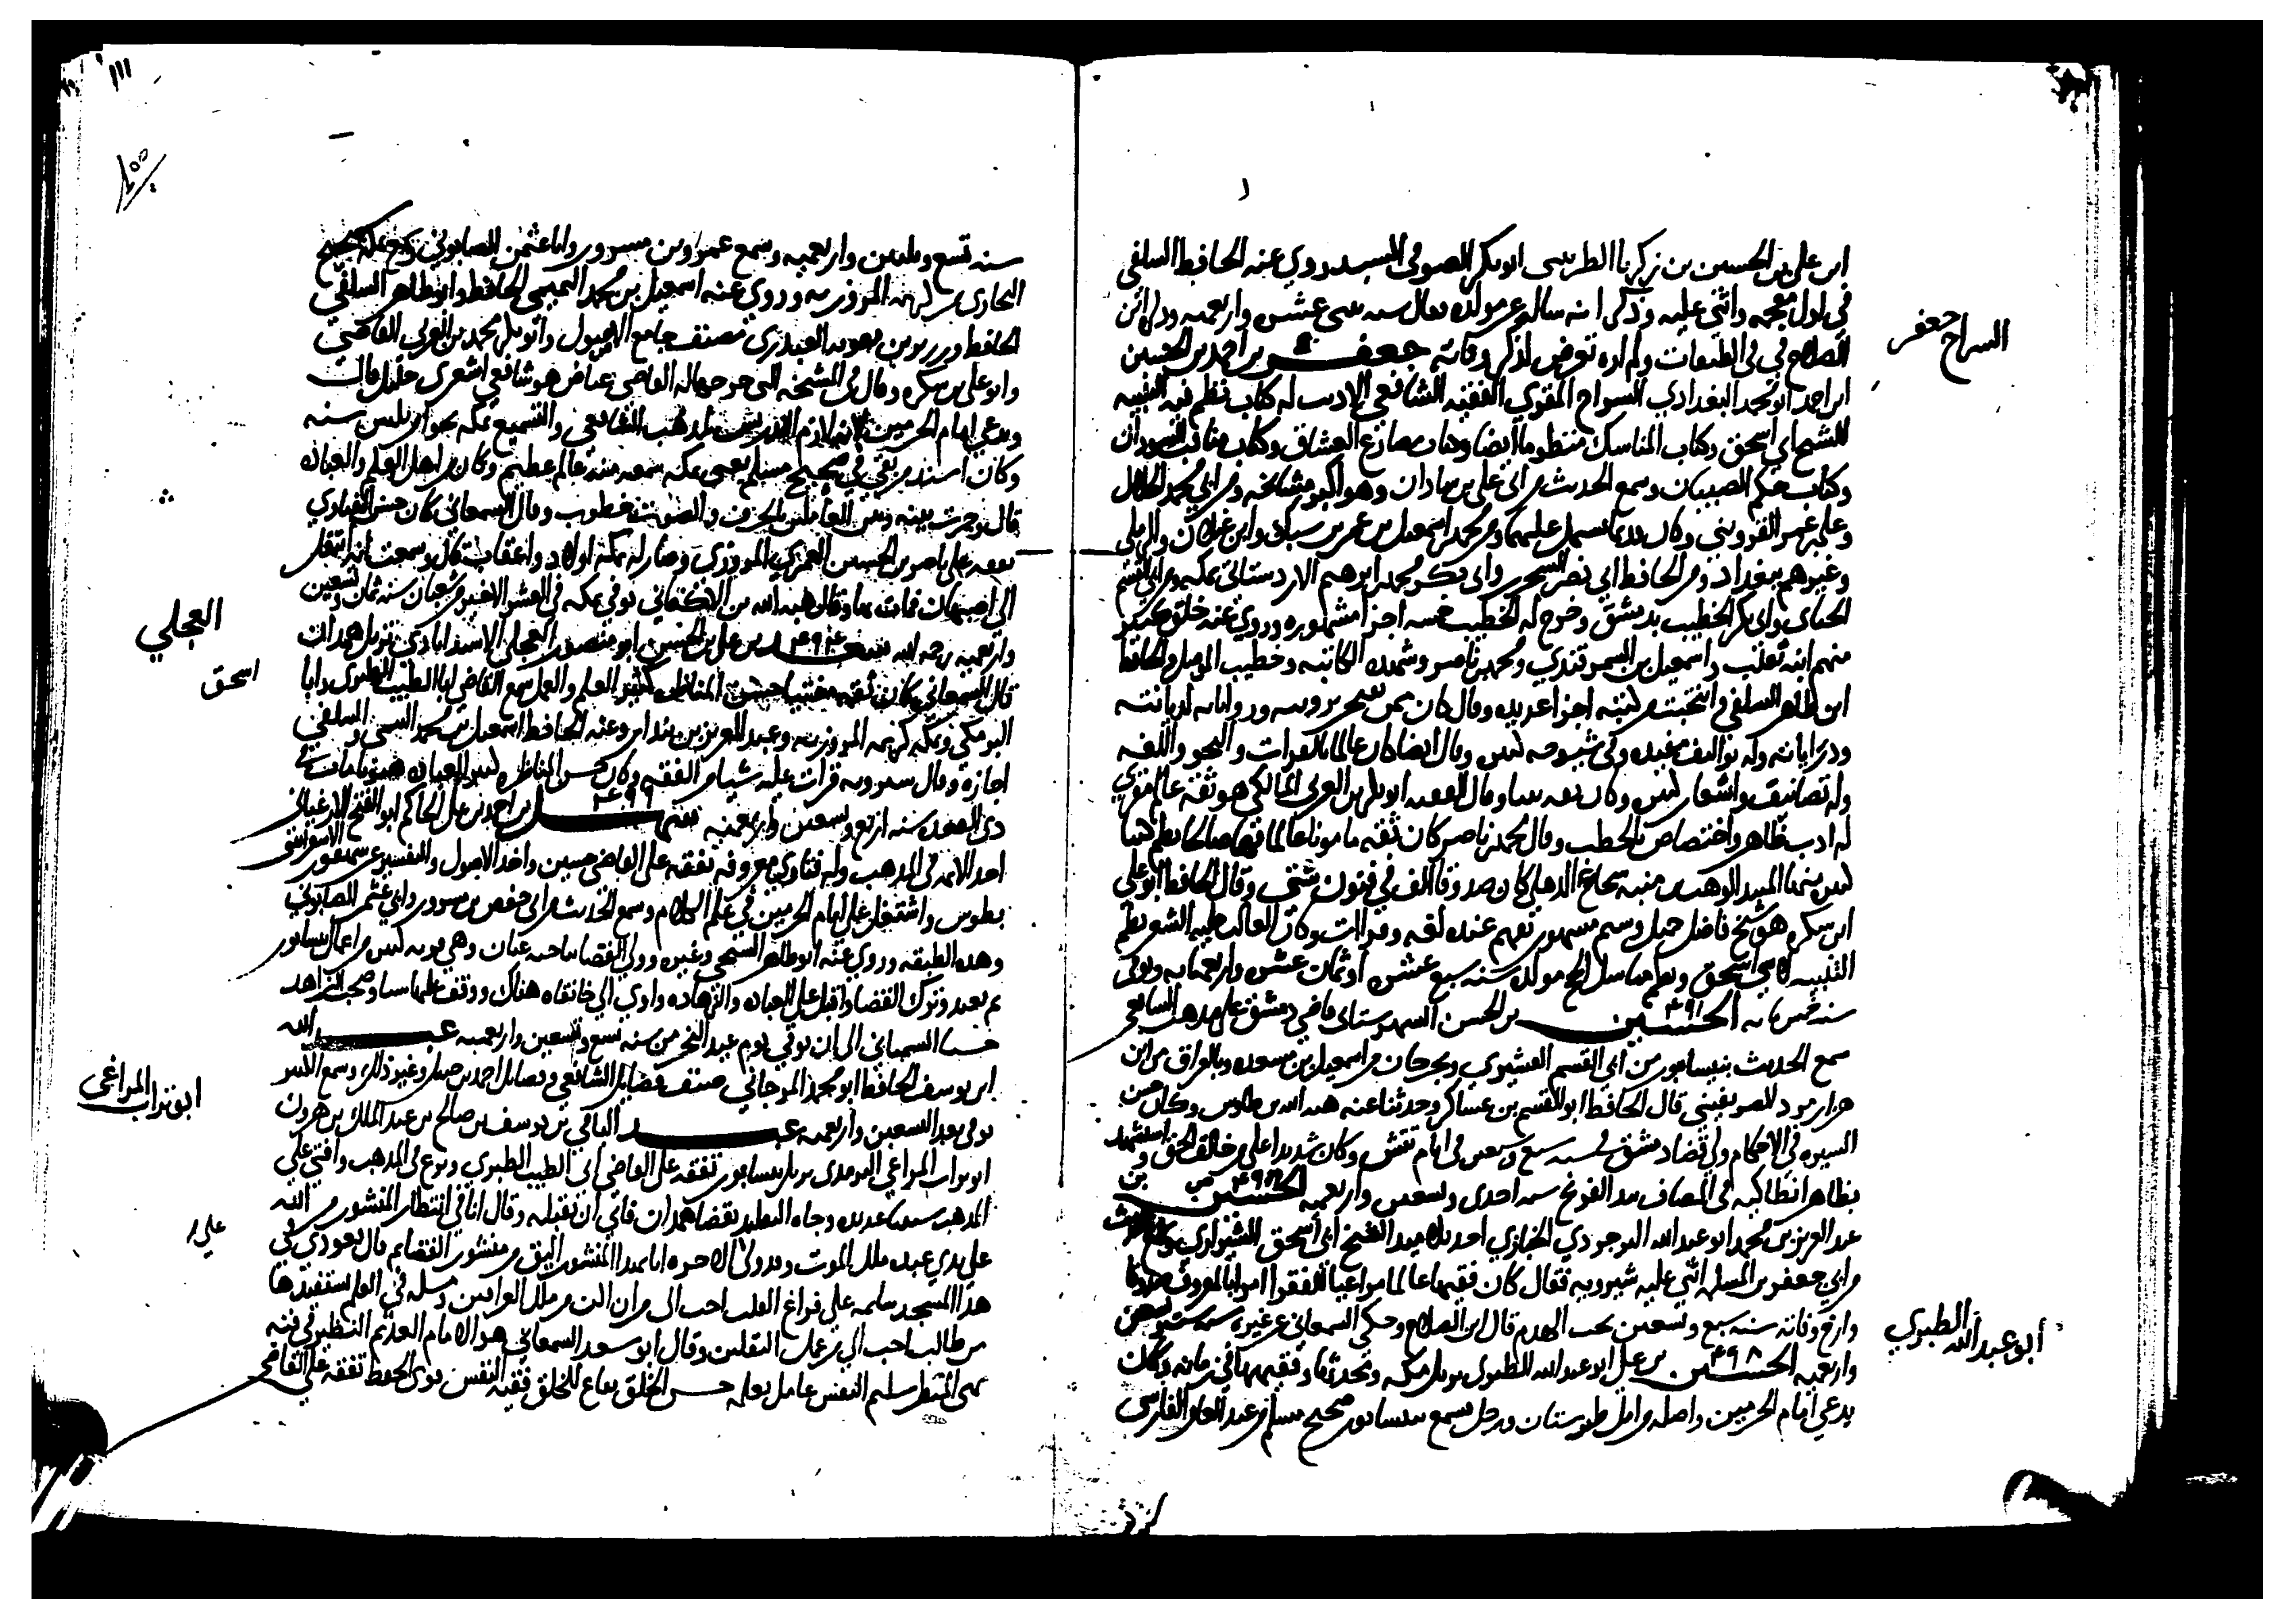 ابن علي بن الحسين بن زكريا الطريثيثي ابو بكر الصوفي المسند روي عنه الحافظ السلفي
في اول معجمه واثني عليه وذكر انه ساله عن مولده فقال سنه عشره واربعميه وذكر ابن
الصلاح في الطبقات ولم اره تعرض لذكر وفاته جعفر بن احمد بن الحسين
ابن احمد ابو محمد البغدادي السراج المقري الفقيه الشافعي الاديب له كتاب نظم فيه التنبيه
للشيخ ابي اسحق وكتاب المناسك منظوما ايضا وكتاب مصارع العشاق وكتاب مناقب السودان
وكتاب حكم الصبيان وسمع الحديث من ابي علي بن شاذان وهو اكبر مشايخه ومن ابي محمد الخلال
وعلي بن عمر القزويني ومحمد بن اسمعيل بن عمر بن سبنك وابن غيلان والبرمكي
وغيرهم ببغداد ومن الحافظ ابي نصر السجزي وابي بكر محمد بن ابرهيم الاردستاني بمكه ومن ابي القسم
الحنائي وابي بكر الخطيب بدمشق وخرج له الخطيب خمسه اجزا مشهوره وروي عنه خلق كثير
منهم ابنه ثعلب واسمعيل بن السمرقندي ومحمد بن ناصر وشهده الكاتبه وخطيب الموصل والحافظ
ابو طاهر السلفي وانتخبت من كتبه اجزا عديده وقال كان ممن يفتخر برويته ورواياته لديانته
ودرايته وله تواليف مفيده وفي شيوخه كثره وقال ايضا كان عالما بالقراات والنحو واللغه
وله تصانيف واشعار كثيره وكان ثقه ثبتا وقال الفقيه ابو بكر بن العربي المالكي هو ثقه عالم مقري
له ادب ظاهر واختصاص بالخطيب وقال محمد بن ناصر كان ثقه مامونا عالما فهما صالحا نظم كتبا
كثيره منها المبتدا لوهب بن منبه شجاع الذهلي كان صدوقا الف في فنون شتي وقال الحافظ ابو علي
ابن سكره هو شيخ فاضل جميل وسيم مشهور يفهم عنده لغه وقراات وكان الغالب عليه الشعر نظم
التنبيه لابي اسحق ونظم مناسك الحج مولده سنه سبع عشره او ثمان عشره واربعمايه وتوفي
سنه خمسمايه الحسين بن الحسن الشهرستاني قاضي دمشق علي مذهب الشافعي
سمع الحديث بنيسابور من ابي القسم القشيري وبجرجان من اسمعيل بن مسعده وبالعراق من ابن
هزارمرد الصريفيني قال الحافظ ابو القسم بن عساكر وحدثنا عنه هبه الله بن طاوس وكان حسن
السيره في الاحكام ولي قضا دمشق في سنه سبع وسبعين في ايام تتش وكان شديدا علي من خالف الحق واستشهد
بظاهر انطاكيه في المصاف بيد الفرنج سنه احدي وتسعين واربعميه الحسين بن
عبد العزيز بن محمد ابو عبد الله البوجردي الخبازي احد تلاميذ الشيخ ابي اسحق الشيرازي
من ابي جعفر بن المسلمه اثني عليه شيرويه فقال كان فقيها عالما مراعيا للفقرا امرا بالمعروف صدوقا
وارخ وفاته سنه سبع وتسعين قال ابن الصلاح وحكي السمعاني عن غيره سنه تسعين
واربعميه الحسين بن علي ابو عبد الله الطبري نزيل مكه ومحدثها وفقيهها في زمانه وكان
يدعي امام الحرمين واصله من امل طبرستان ورحل فسمع بنيسابور صحيح مسلم من عبد الغافر الفارسي
السراج جعفر
أبو عبد الله الطبري
سنه تسع وثلثين واربعميه وسمع عمر بن مسرور وابا عثمن الصابوني
البخاري من كريمه المروزيه وروي عنه اسمعيل بن محمد التيمي الحافظ وابو طاهر السلفي
الحافظ ورزين بن معويه العبدري مصنف جامع الاصول وابو بكر محمد بن العربي القاضي
وابو علي بن سكره وقال في المشيخه التي خرجها له القاضي عياض هو شافعي اشعري جليل قال
ويدعي امام الحرمين لانه لازم التدريس لمذهب الشافعي والتسميع بمكه نحوا من ثلثين سنه
وكان اسند من بقي في صحيح مسلم يعني بمكه سمعه منه عالم عظيم وكان من اهل العلم والعباده
قال وجرت بينه وبين القائلين بالحرف والصوت خطوب وقال السمعاني كان حسن الفتاوي
تفقه علي ناصر بن الحسين العمري المروزي وصار له بمكه اولاد واعقاب قال وسمعت انه انتقل
الي اصبهان فمات بها وقال هبه الله بن الاكفاني توفي بمكه في العشر الاخير من شعبان سنه ثمان وتسعين
واربعميه رحمه الله سعد بن علي بن الحسين ابو منصور العجلي الاسداباذي نزيل همدان
قال السمعاني كان ثقه مفتيا حسن المناظره كثير العلم والعمل سمع القاضي ابا الطيب الطبري وابا
البرمكي وبمكه كريمه المروزيه وعبد العزيز بن بندار وعنه الحافظ اسمعيل بن محمد التيمي والسلفي
اجازه وقال شيرويه قرات عليه شيا من الفقه وكان حسن المناظره كثير العباده هيوبا مات في
ذي القعده سنه اربع وتسعين واربعميه سهل بن احمد بن علي الحاكم ابو الفتح الارغياني
احد الايمه في المذهب وله فتاوي معروفه تفقه علي القاضي حسين واخذ الاصول والتفسير عن شهفور الاسفرايني
بطوس واشتغل علي امام الحرمين في علم الكلام وسمع الحديث من ابي حفص بن مسرور وابي عثمن الصابوني
وهذه الطبقه وروي عنه ابو طاهر السنجي وغيره وولي القضا بناحيه عبان وهي قريه كبيره من اعمال نيسابور
ثم تعبد وترك القضا واقبل علي العباده والزهاده واوي الي خانقاه هناك ووقف عليها شيا وصحب الزاهد
حسنا السمناني الي ان توفي يوم عيد النحر من سنه تسع وتسعين واربعميه عبد الله
ابن يوسف الحافظ ابو محمد الجرجاني صنف فضايل الشافعي وفضايل احمد بن حنبل وغير ذلك وسمع الكثير
توفي بعد التسعين واربعميه عبد الباقي بن يوسف بن صالح بن عبد الملك بن هرون
ابو تراب المراغي نزيل نيسابور تفقه علي القاضي ابي الطيب الطبري وبرع في المذهب وافتي علي
المذهب سنينا عديده وجاه التقليد بقضا همدان فابي ان يقبله وقال انا في انتظار المنشور من الله
علي يدي عبده ملك الموت وقدومي الاخره انا بهذا المنشور اليق من منشور القضا ثم قال قعودي في
هذا المسجد ساعه علي فراغ القلب احب الي من ان اكون من ملك العراقين ومسله في العلم استفيدها
من طالب احب الي من عمل الثقلين وقال ابو سعد السمعاني هو الامام العديم النظير في فنه
بهي المنظر سليم النفس عامل بعلمه حسن الخلق نفاع للخلق فقيه النفس قوي الحفظ تفقه علي القاضي
العجلي
اسحق
ابو تراب المراغي